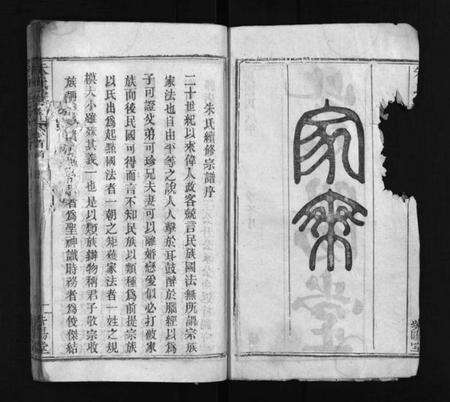 家乘
朱氏續修宗譜序
二十世紀以來偉人政客競言民族國法無所謂宗族
家法也自由平等之說人人擊於耳鼓醉於腦經以爲
子可證父弟可珍兄夫妻可以離婚戀愛似必打破家
族而後民國可得而言不知民族以類種爲前提宗族
以氏出爲起點國法者一朝之矩矱家法者一姓之規
模大小雖殊其義一也是以類族辨物稱君子敬宗收
族 者爲聖神識時務者爲俊傑結